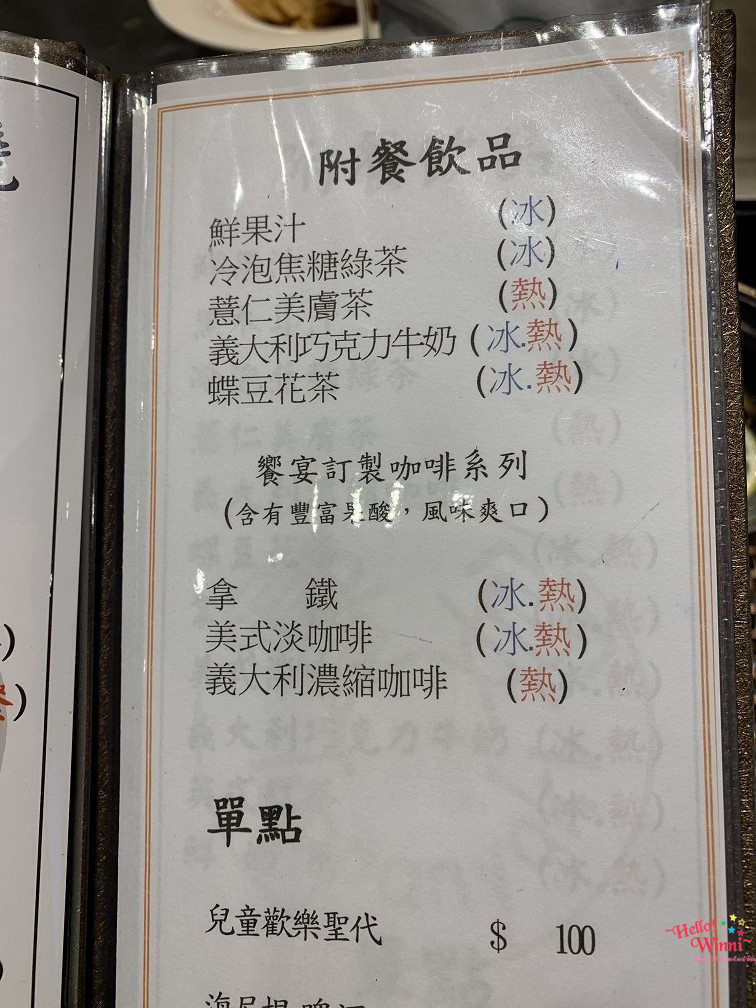 附餐飲品
鮮果汁 (冰)
冷泡焦糖綠茶 (冰)
薏仁美膚茶 (熱)
義大利巧克力牛奶 (冰.熱)
蝶豆花茶 (冰.熱)
饗宴訂製咖啡系列
(含有豐富果酸，風味爽口)
拿 鐵 (冰.熱)
美式淡咖啡 (冰.熱)
義大利濃縮咖啡 (熱)
單點
兒童歡樂聖代 $ 100
~Hello! Winni~